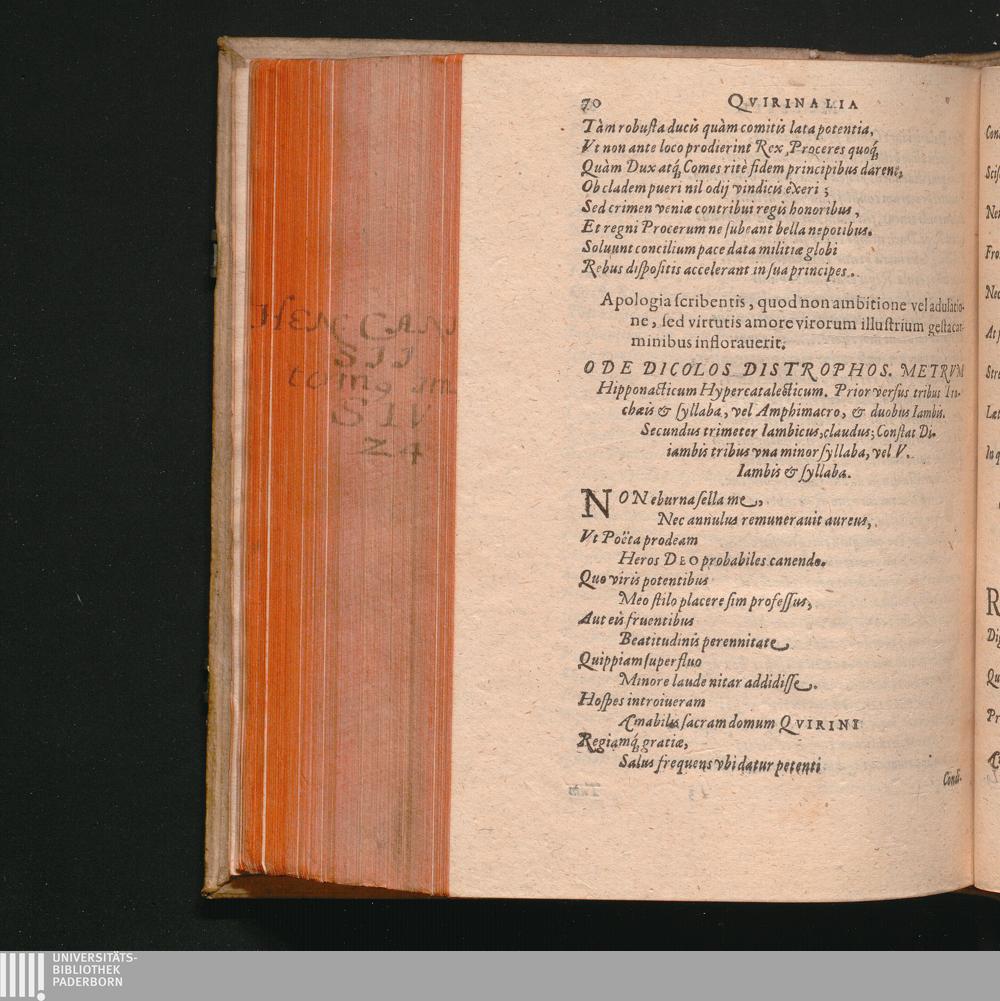 70 QVIRINALIA
Tàm robusta ducis quàm comitis lata potentia,
Vt non ante loco prodierint Rex, Proceres quoq́,
Quàm Dux atq́, Comes ritè fidem principibus darent,
Ob cladem pueri nil odij vindicis exeri ;
Sed crimen veniæ contribui regis honoribus,
Et regni Procerum ne subeant bella nepotibus.
Soluunt concilium pace data militiæ globi
Rebus dispositis accelerant in sua principes.
Apologia scribentis, quod non ambitione vel adulatio-
ne, sed virtutis amore virorum illustrium gesta car-
minibus inflorauerit.
ODE DICOLOS DISTROPHOS. METRVM
Hipponacticum Hypercatalecticum. Prior versus tribus Tro-
chæis & syllaba, vel Amphimacro, & duobus Iambis.
Secundus trimeter Iambicus, claudus; Constat Di-
iambis tribus vna minor syllaba, vel V.
Iambis & syllaba.
NON eburna sella me,
Nec annulus remunerauit aureus,
Vt Poëta prodeam
Heros DEO probabiles canendo.
Quo viris potentibus
Meo stilo placere sim professus,
Aut eis fruentibus
Beatitudinis perennitate
Quippiam superfluo
Minore laude nitar addidisse.
Hospes introiueram
Amabilis sacram domum QVIRINI
Regiamq́ gratiæ,
Salus frequens vbi datur petenti
Condi-
HENC CANI
SII
tomg
SIV
24
Con
Scis
Nec
Fro
Nec
At
Stre
Læt
In q
R
Dig
Qu
Pr
UNIVERSITÄTS-
BIBLIOTHEK
PADERBORN